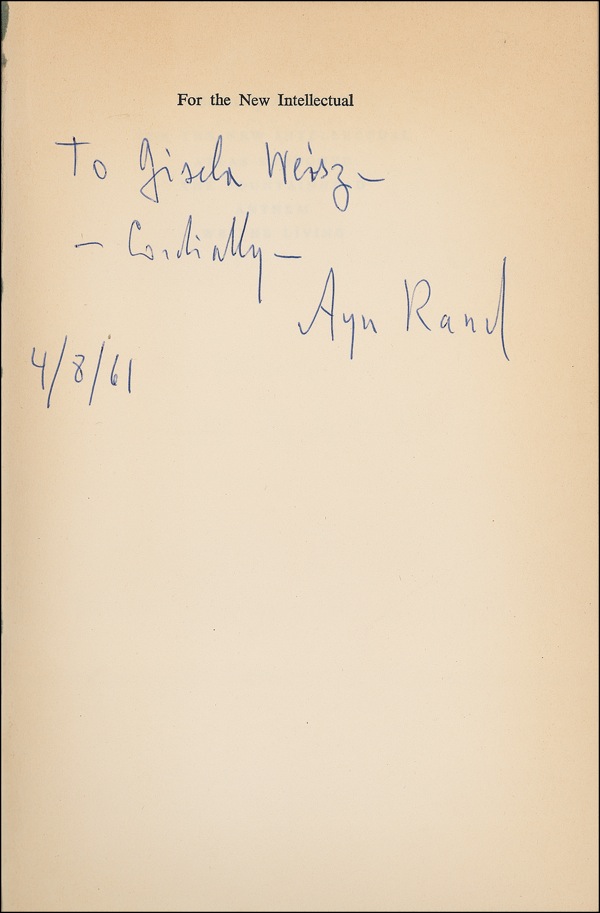 For the New Intellectual
To Gisela Weisz —
— Cordially —
Ayn Rand
4/8/61